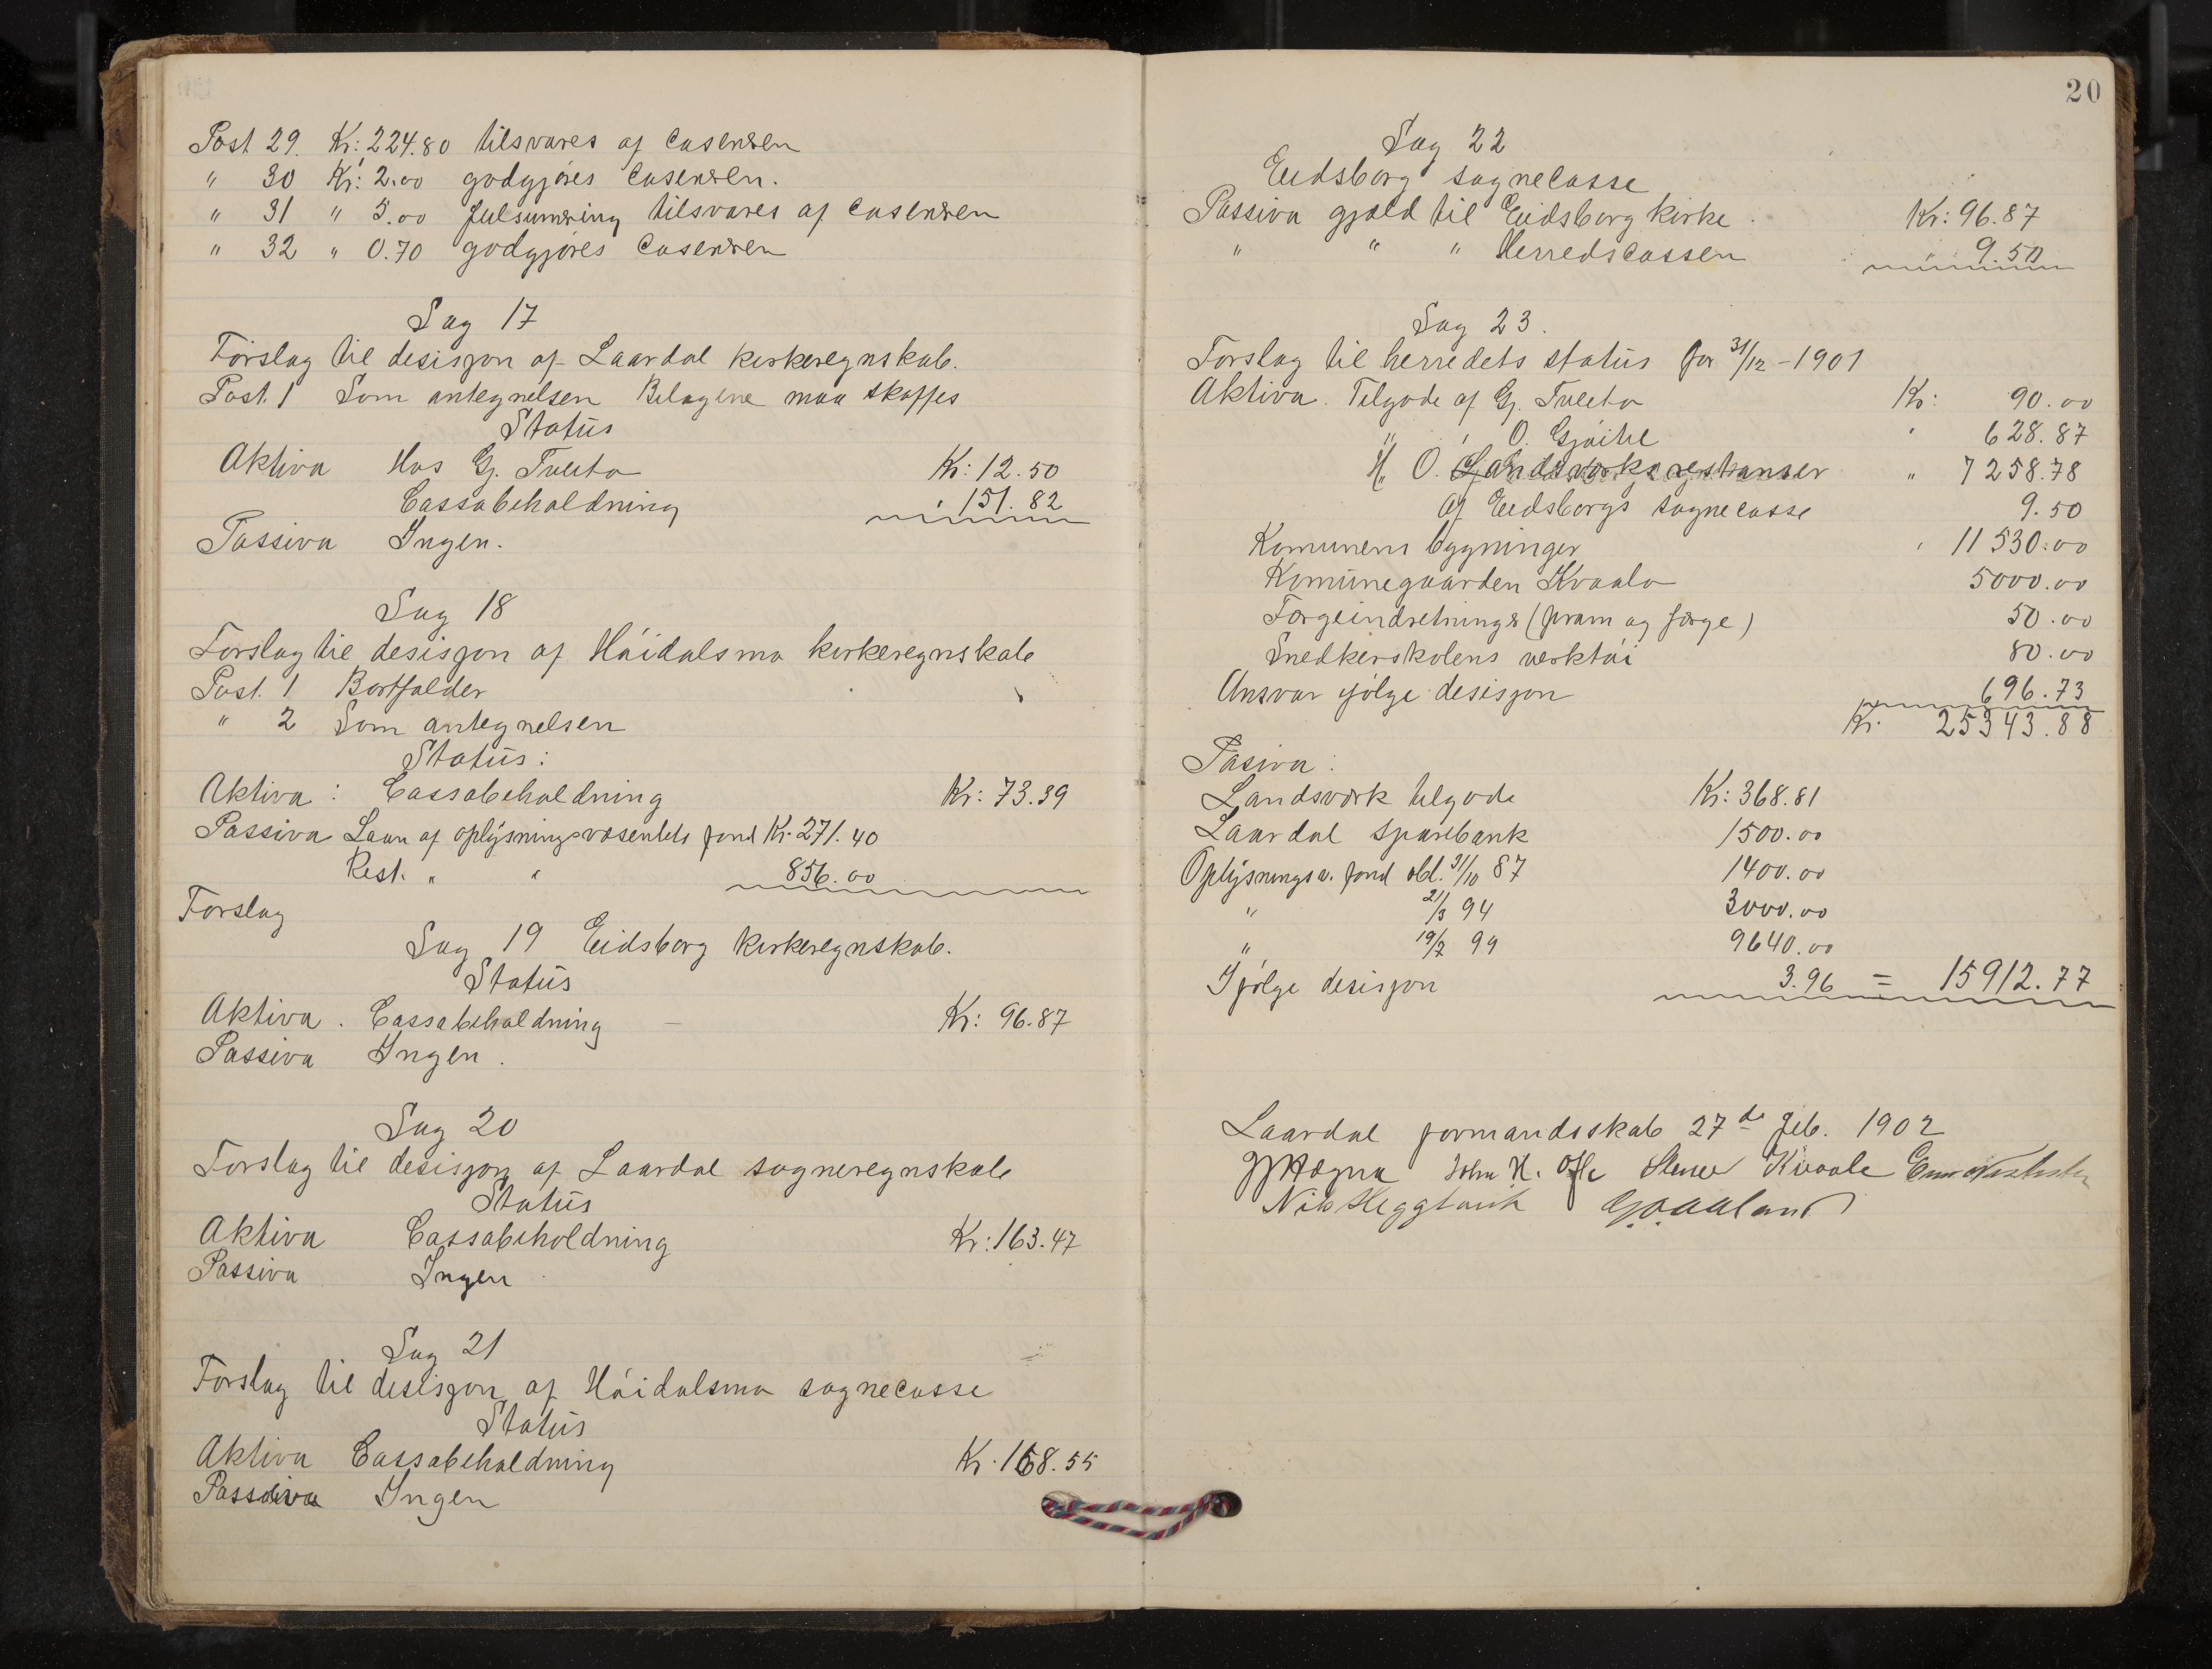 Post 29. Kr: 224.80 tilsvares af Caseræren
" 30 Kr: 2.00 godgjøres Caseræren.
" 31 " 5.00 feilsumering tilsvares af Caseræren
" 32 " 0.70 godgjøres Caseræren
Sag 17
Forslag til desisjon af Laardal kirkeregnskab.
Post. 1 Som antegnelsen Bilagene maa skaffes
Status
Aktiva Hos Gj. Tveito Kr: 12.50
Cassabeholdning " 151.82
Passiva Ingen.
Sag 18
Forslag til desisjon af Høidalsmo kirkeregnskab
Post. 1 Bortfalder
" 2 Som antegnelsen
Status:
Aktiva: Cassabeholdning Kr: 73.39
Passiva Laan af oplysningsvæsenets fond Kr. 271.40
Rest. " " 856.00
Forslag
Sag 19 Eidsborg kirkeregnskab.
Status
Aktiva. Cassabeholdning – Kr: 96.87
Passiva Ingen.
Sag 20
Forslag til desisjon af Laardal sogneregnskab
Status
Aktiva Cassabeholdning Kr: 163.47
Passiva Ingen
Sag 21
Forslag til desisjon af Høidalsmo sognecasse
Status
Aktiva Cassabeholdning Kr. 168.55
Passiva Ingen
20
Sag 22
Eidsborg sognecasse
Passiva gjæld til Eidsborg kirke. Kr: 96.87
" " " Herredscassen " 9.50
Sag 23.
Forslag til herredets status for 31/12 – 1901
Aktiva. Tilgode af Gj. Tveito Kr: 90.00
" " O. Gjøitil " 628.87
H. O. Landsværks restanser " 7258.78
Af Eidsborgs sognecasse 9.50
Komunens bygninger " 11530.00
Komunegaarden Kvaalo 5000.00
Færgeindretninger (pram og færge) 50.00
Snedkerskolens værktøi 80.00
Ansvar ifølge desisjon 696.73
Kr. 25343.88
Pasiva:
Landsværk tilgode Kr: 368.81
Laardal sparebank 1500.00
Oplysningsv. fond obl. 31/10 87 1400.00
" 21/3 94 3000.00
" 19/7 99 9640.00
Ifølge desisjon 3.96 = 15912.77
Laardal formandsskab 27de Feb. 1902
John H. Ofte Kvaale